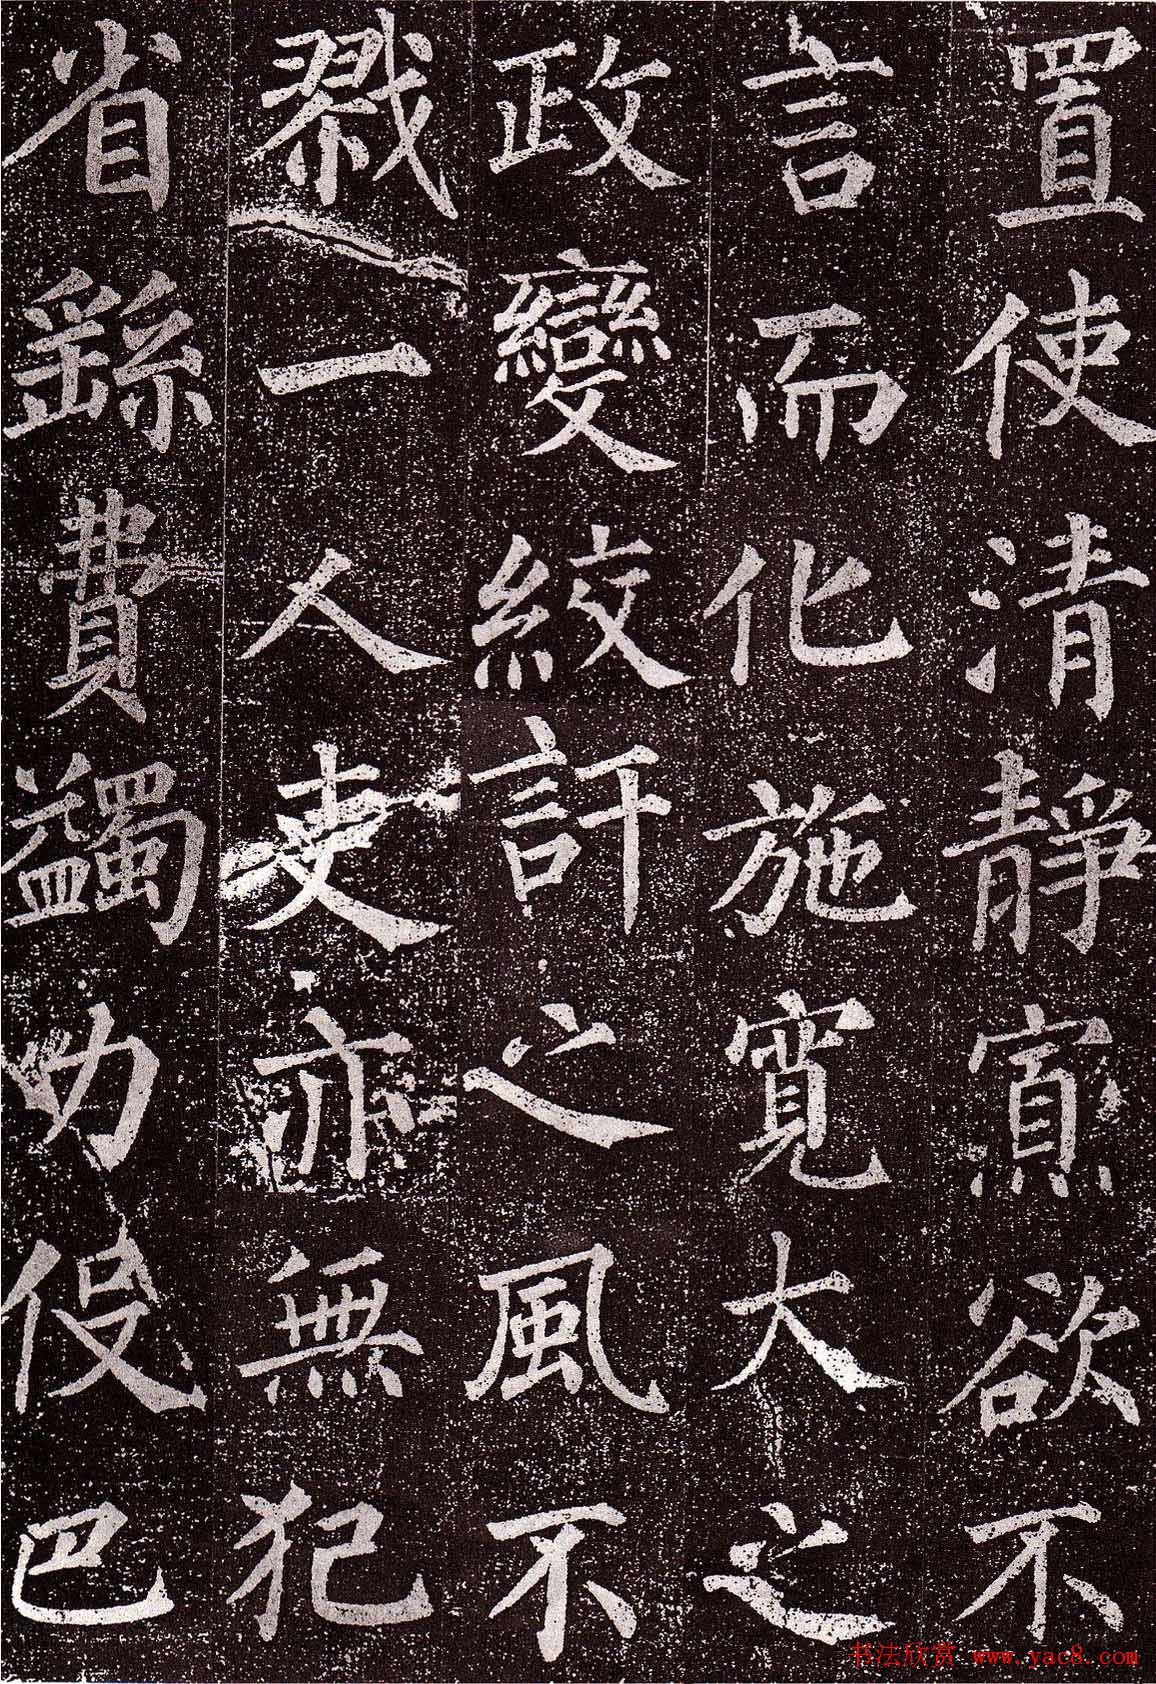 置使清靜寡欲不
言而化施寬大之
政變絞訐之風不
戮一人吏亦無犯
省繇費蠲力伇巴
书法欣赏 www.yac8.com